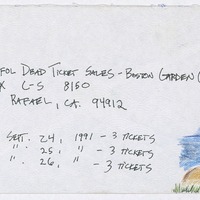 FOL DEAD TICKET SALES - BOSTON GARDEN
X C-S 8150
RAFAEL, CA. 94912
SEPT. 24, 1991 - 3 TICKETS
" 25, " - 3 TICKETS
" 26, " - 3 TICKETS